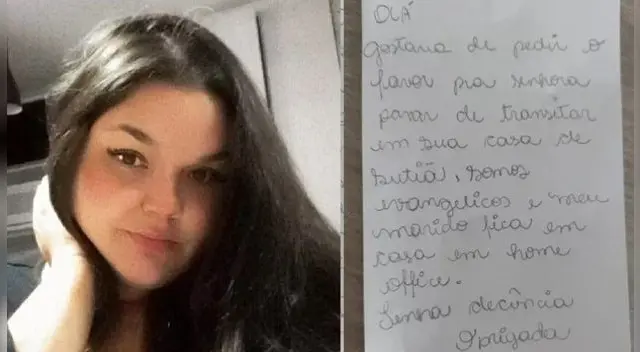 OLÁ
Gostaria de pedir o
favor pra senhora
parar de transitar
em sua casa de
sutiã, somos
evangelicos e meu
marido fica em
casa em home
office.
Tenha decência
Obrigada